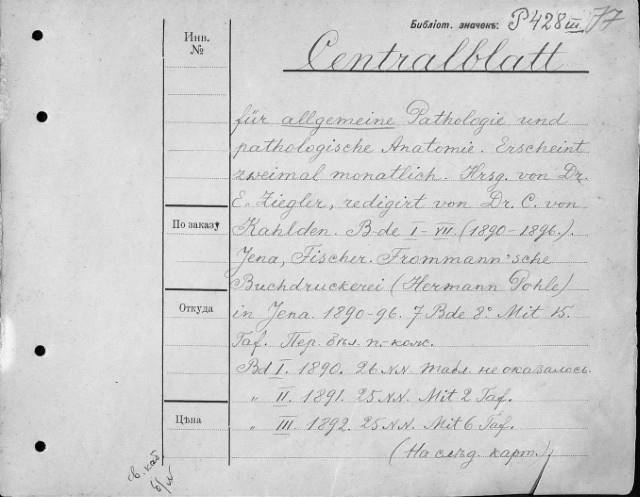 Библіот. значекъ: P 428 III 77
Инв. №
Centralblatt
für allgemeine Pathologie und
pathologische Anatomie. Erscheint
zweimal monatlich. Hrsg. von Dr.
E. Ziegler, redigirt von Dr. C. von
По заказу
Kahlden. B-de I-VII. (1890-1896.).
Jena, Fischer. Frommann'sche
Buchdruckerei (Hermann Pohle)
Откуда
in Jena. 1890-96. 7 Bde 8° Mit 15.
Taf. Пер. бѣл. п.-кожс.
Bd I. 1890. 26 NN табл. не оказалось.
„ II. 1891. 25 NN. Mit 2 Taf.
Цѣна
„ III. 1892. 25 NN. Mit 6 Taf.
(На слѣд. карт.)